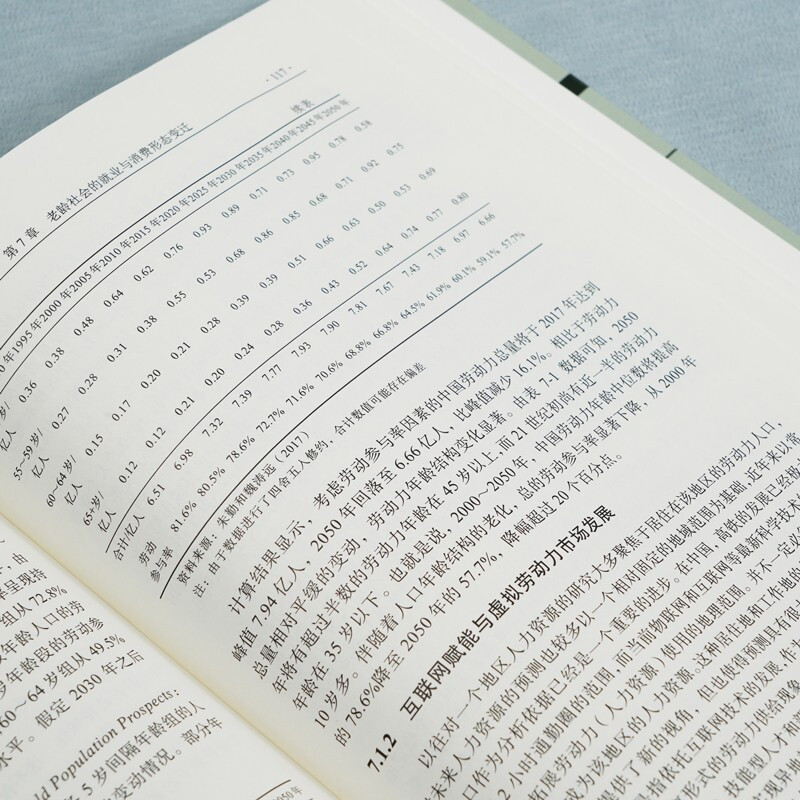 由
呈现持
组从72.8%
年龄人口的劳
岁年龄段的劳动参
60～64岁组从49.5%
水平。假定2030年之后
ld Population Prospects:
5岁间隔年龄组的人
变动情况。部分年
第7章 老龄社会的就业与消费形态变迁 ·117·
续表
0年1995年2000年2005年2010年2015年2020年2025年2030年2035年2040年2045年2050年
岁/
亿人 0.36 0.38 0.48 0.64 0.62 0.76 0.93 0.89 0.71 0.73 0.95 0.78 0.58
55～59岁/
亿人 0.27 0.28 0.31 0.38 0.55 0.53 0.68 0.86 0.85 0.68 0.71 0.92 0.75
60～64岁/
亿人 0.15 0.17 0.20 0.21 0.28 0.39 0.39 0.51 0.66 0.63 0.50 0.53 0.69
65+岁/
亿人 0.12 0.12 0.21 0.20 0.24 0.28 0.36 0.43 0.52 0.64 0.74 0.77 0.80
合计/亿人 6.51 6.98 7.32 7.39 7.77 7.93 7.90 7.81 7.67 7.43 7.18 6.97 6.66
劳动
参与率 81.6% 80.5% 78.6% 72.7% 71.6% 70.6% 68.8% 66.8% 64.5% 61.9% 60.1% 59.1% 57.7%
资料来源：朱勤和魏涛远（2017）
注：由于数据进行了四舍五入修约，合计数值可能存在偏差
计算结果显示，考虑劳动参与率因素的中国劳动力总量将于2017年达到
峰值7.94亿人，2050年回落至6.66亿人，比峰值减少16.1%。相比于劳动力
总量相对平缓的变动，劳动力年龄结构变化显著。由表7-1数据可知，2050
年将有超过半数的劳动力年龄在45岁以上，而21世纪初尚有近一半的劳动力
年龄在35岁以下。也就是说，2000～2050年，中国劳动力年龄中位数将提高
10岁多。伴随着人口年龄结构的老化，总的劳动参与率显著下降，从2000年
的78.6%降至2050年的57.7%，降幅超过20个百分点。
7.1.2 互联网赋能与虚拟劳动力市场发展
以往对一个地区人力资源的研究大多聚焦于居住在该地区的劳动力人口，
未来人力资源的预测也较多以一个相对固定的地域范围为基础，近年来以常
口作为分析依据已经是一个重要的进步。在中国，高铁的发展已经极
2小时通勤圈的范围，而当前物联网和互联网等最新科学技术
拓展劳动力（人力资源）使用的地理范围。并不一定必
成为该地区的人力资源。这种居住地和工作地的
提供了新的视角，但也使得预测具有很
指依托互联网技术的发展，作
形式的劳动力供给现象
技能型人才和
实现异地